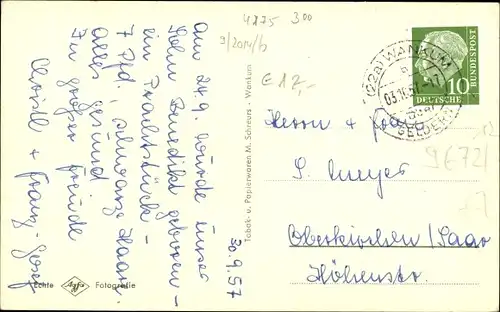 4175 300
9/2014/b
€ 12,-
Am 24.9. wurde unser
Sohn Benedikt geboren -
ein Prachtstück -
7 Pfd., schwarze Haare,
alles gesund.
In großer Freude
Christl + Franz-Josef
30.9.57
Echte Agfa Fotografie
Tabak- u. Papierwaren M. Schreurs - Wankum
(22a) WANKUM
03.10.57.-17
GELDERN
DEUTSCHE
BUNDESPOST
10
Herrn + Frau
S. Meyer
Oberkirchen/Saar
Höhenstr.